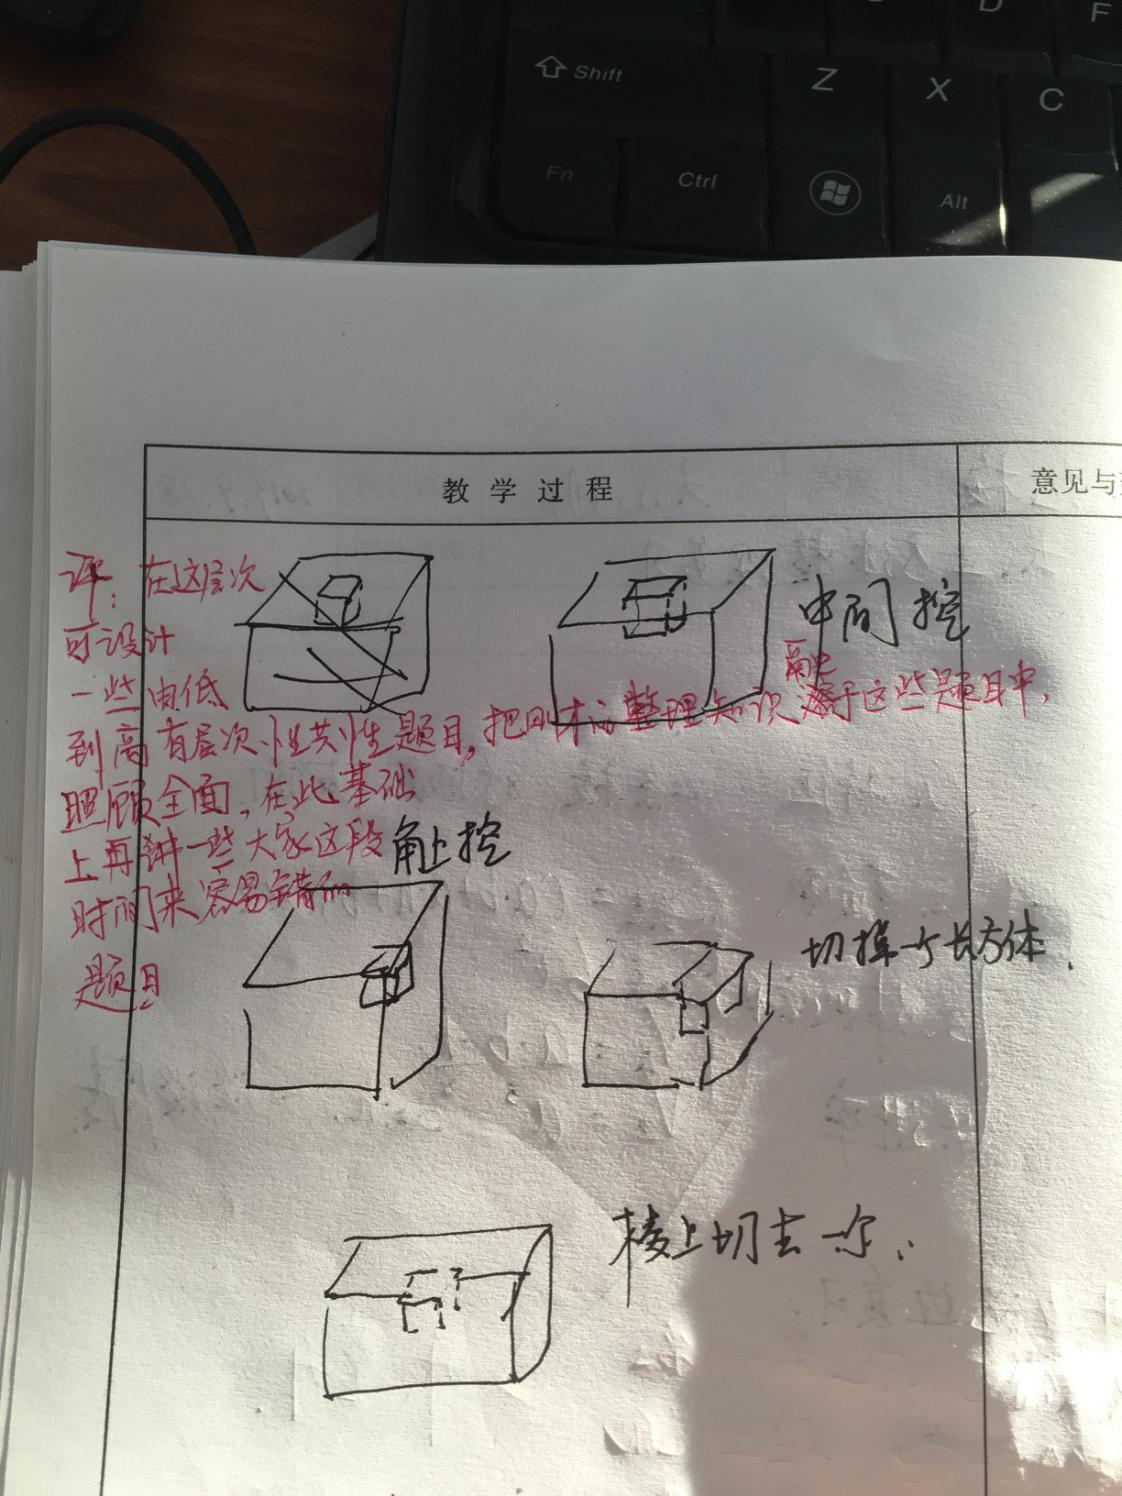 D
F
Shift
Z
X
C
Fn
Ctrl
Alt
教学过程
意见与
评：在这层次
可设计
一些由低
到高有层次性共性题目，把刚才的整理知识融于这些题目中，
照顾全面，在此基础
上再讲一些大家这段
时间来容易错的
题目
中间挖
角上挖
切掉一个长方体．
棱上切去一个．